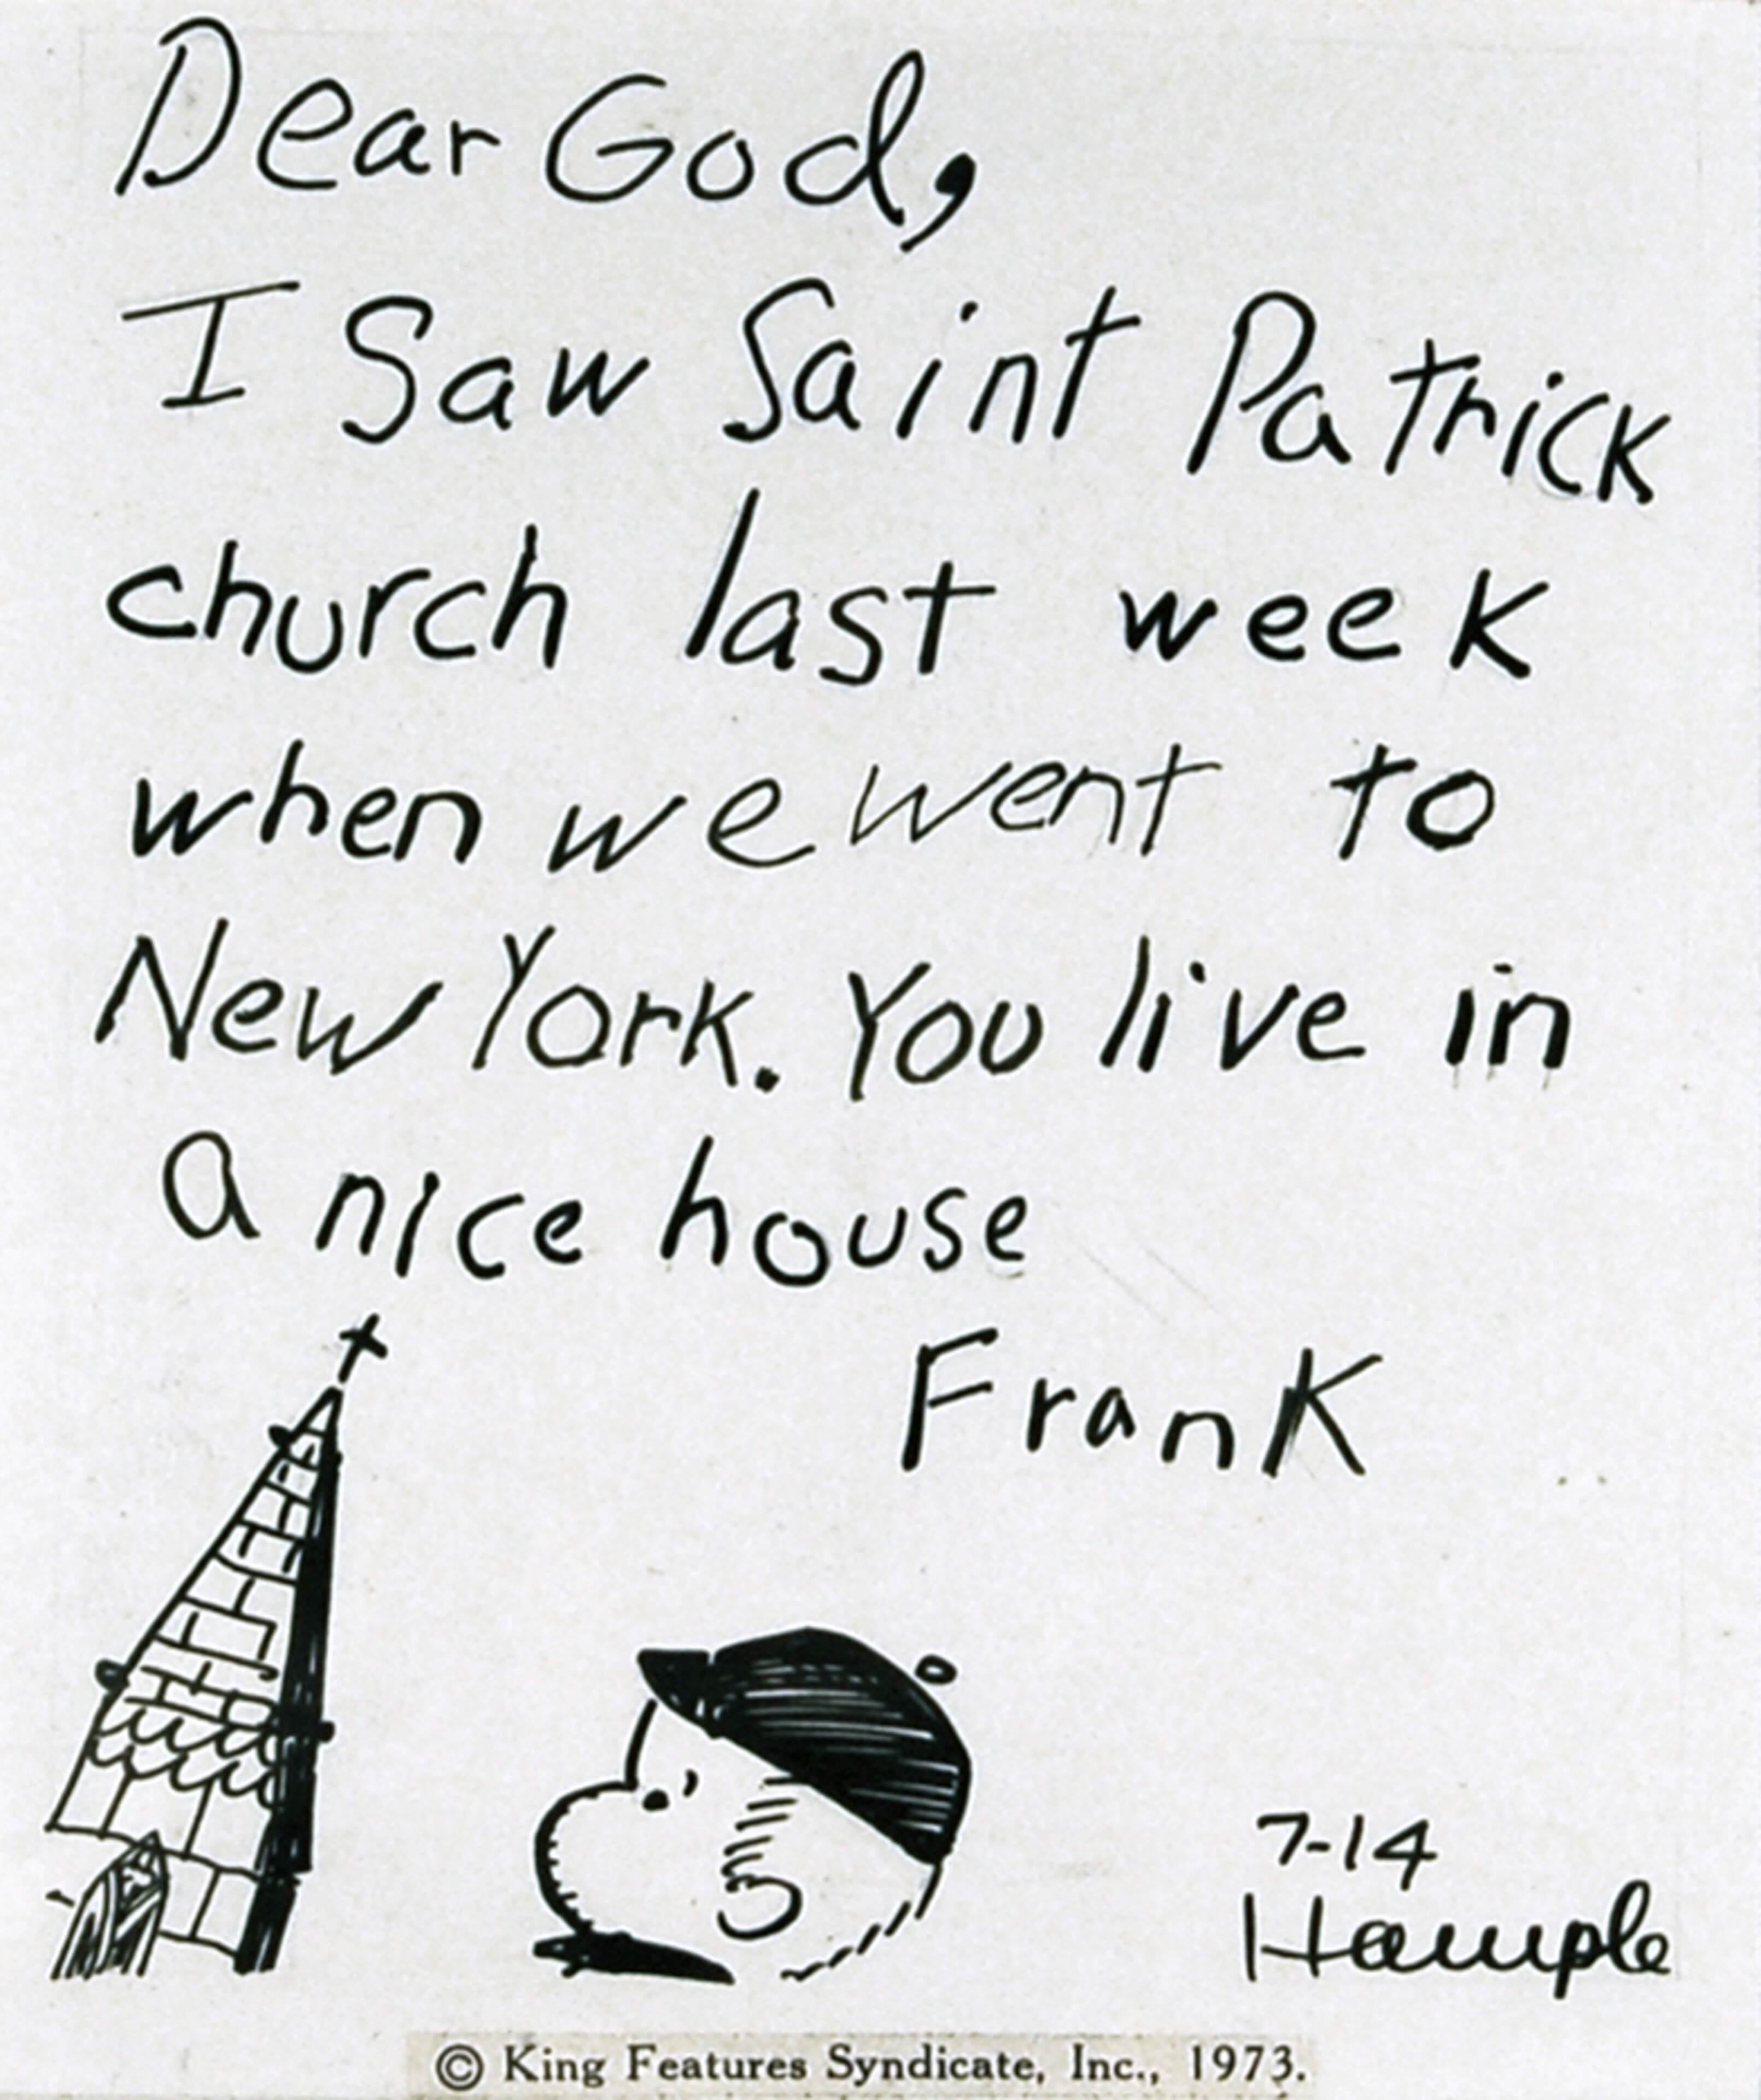 Dear God,
I Saw Saint Patrick
church last week
when we went to
New York. You live in
a nice house
Frank
7-14
Hample
© King Features Syndicate, Inc., 1973.